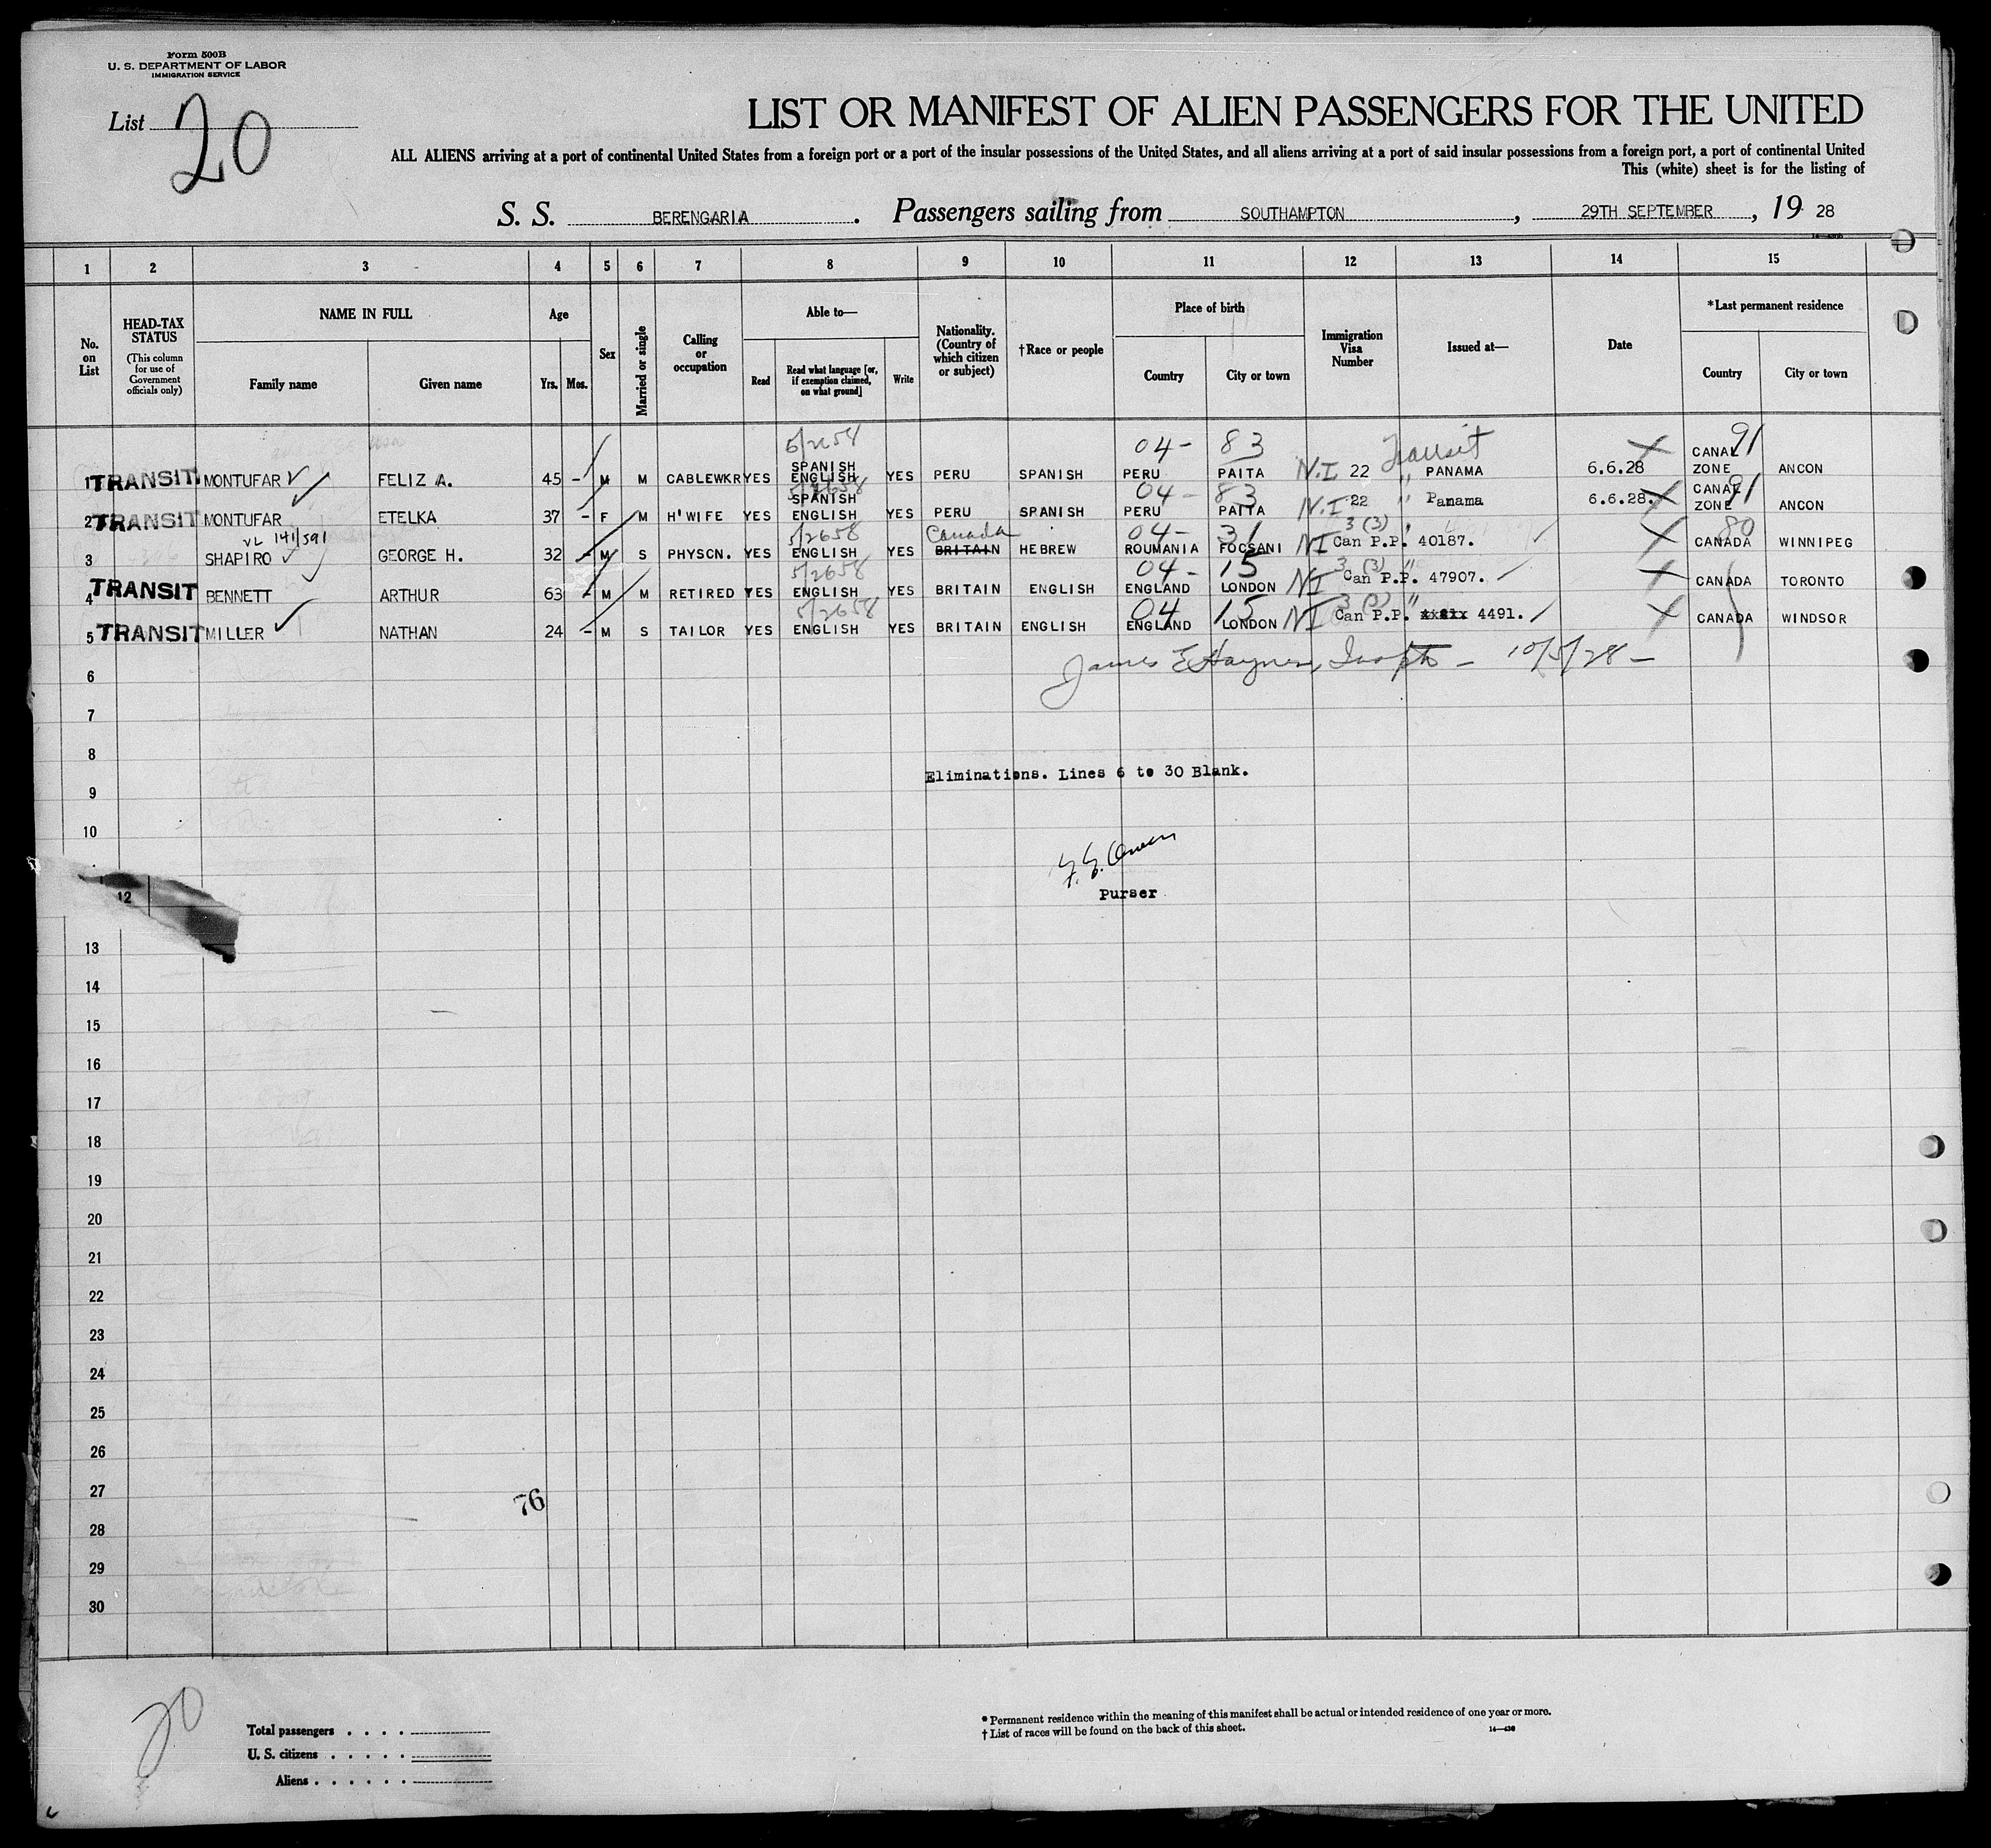 Form 500B
U. S. DEPARTMENT OF LABOR
IMMIGRATION SERVICE
List 20
LIST OR MANIFEST OF ALIEN PASSENGERS FOR THE UNITED
ALL ALIENS arriving at a port of continental United States from a foreign port or a port of the insular possessions of the United States, and all aliens arriving at a port of said insular possessions from a foreign port, a port of continental United
This (white) sheet is for the listing of
S. S. BERENGARIA. Passengers sailing from SOUTHAMPTON, 29TH SEPTEMBER, 19 28
1 2 3 4 5 6 7 8 9 10 11 12 13 14 15
No. on List
HEAD-TAX STATUS (This column for use of Government officials only)
NAME IN FULL
Family name
Given name
Age
Yrs. Mos.
Sex
Married or single
Calling or occupation
Able to—
Read
Read what language [or, if exemption claimed, on what ground]
Write
Nationality. (Country of which citizen or subject)
†Race or people
Place of birth
Country
City or town
Immigration Visa Number
Issued at—
Date
*Last permanent residence
Country
City or town
5/2658 04- 83 Transit 91
1 TRANSIT MONTUFAR FELIZ A. 45 - M M CABLEWKR YES SPANISH ENGLISH YES PERU SPANISH PERU PAITA N.I 22 PANAMA 6.6.28 CANAL ZONE ANCON
5/2658 04- 83 " 91
2 TRANSIT MONTUFAR ETELKA 37 - F M H'WIFE YES SPANISH ENGLISH YES PERU SPANISH PERU PAITA N.I 22 Panama 6.6.28. CANAL ZONE ANCON
VL 141/591 5/2658 Canada 04- 31 3 (3) 80
3 SHAPIRO GEORGE H. 32 - M S PHYSCN. YES ENGLISH YES BRITAIN HEBREW ROUMANIA FOCSANI NI Can P.P. 40187. CANADA WINNIPEG
5/2658 04- 15 3 (3) "
4 TRANSIT BENNETT ARTHUR 63 - M M RETIRED YES ENGLISH YES BRITAIN ENGLISH ENGLAND LONDON NI Can P.P. 47907. CANADA TORONTO
5/2658 04 15 3 (3) "
5 TRANSIT MILLER NATHAN 24 - M S TAILOR YES ENGLISH YES BRITAIN ENGLISH ENGLAND LONDON NI Can P.P. 4491. CANADA WINDSOR
James E Haynes, Insptr - 10/5/28 -
6
7
8
Eliminations. Lines 6 to 30 Blank.
9
10
12
Purser
13
14
15
16
17
18
19
20
21
22
23
24
25
26
27
76
28
29
30
20
Total passengers
U. S. citizens
Aliens
* Permanent residence within the meaning of this manifest shall be actual or intended residence of one year or more.
† List of races will be found on the back of this sheet.
14—430